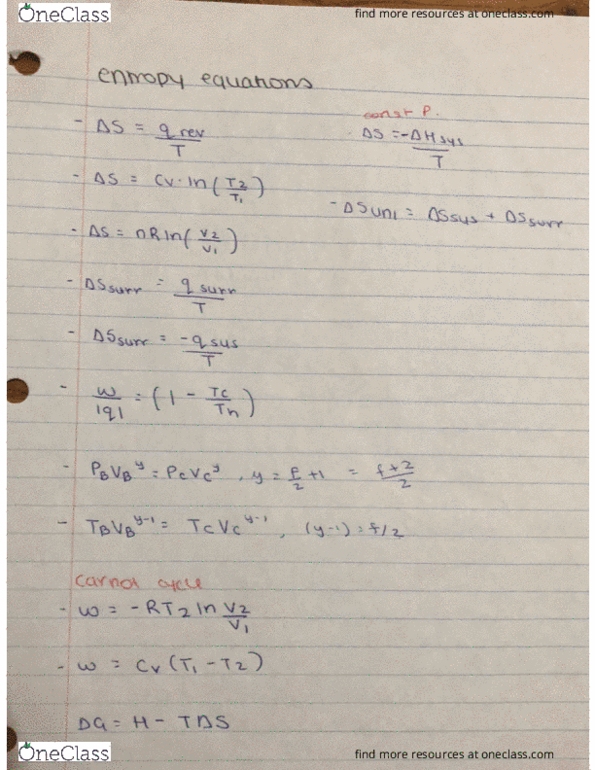 OneClass
find more resources at oneclass.com
entropy equations
- ΔS = q rev / T
const P.
ΔS = -ΔH sys / T
- ΔS = Cv · ln (T2/T1)
- ΔS uni = ΔS sys + ΔS surr
- ΔS = nR ln (V2/V1)
- ΔS surr = q surr / T
- ΔS surr = -q sys / T
- w/|q| = (1 - Tc/Th)
- P_B V_B^y = P_C V_C^y , y = f/2 + 1 = f+2/2
- T_B V_B^y-1 = T_C V_C^y-1 , (y-1) = f/2
carnot cycle
- w = -RT2 ln V2/V1
- w = Cv (T1 - T2)
ΔG = H - TΔS
OneClass
find more resources at oneclass.com